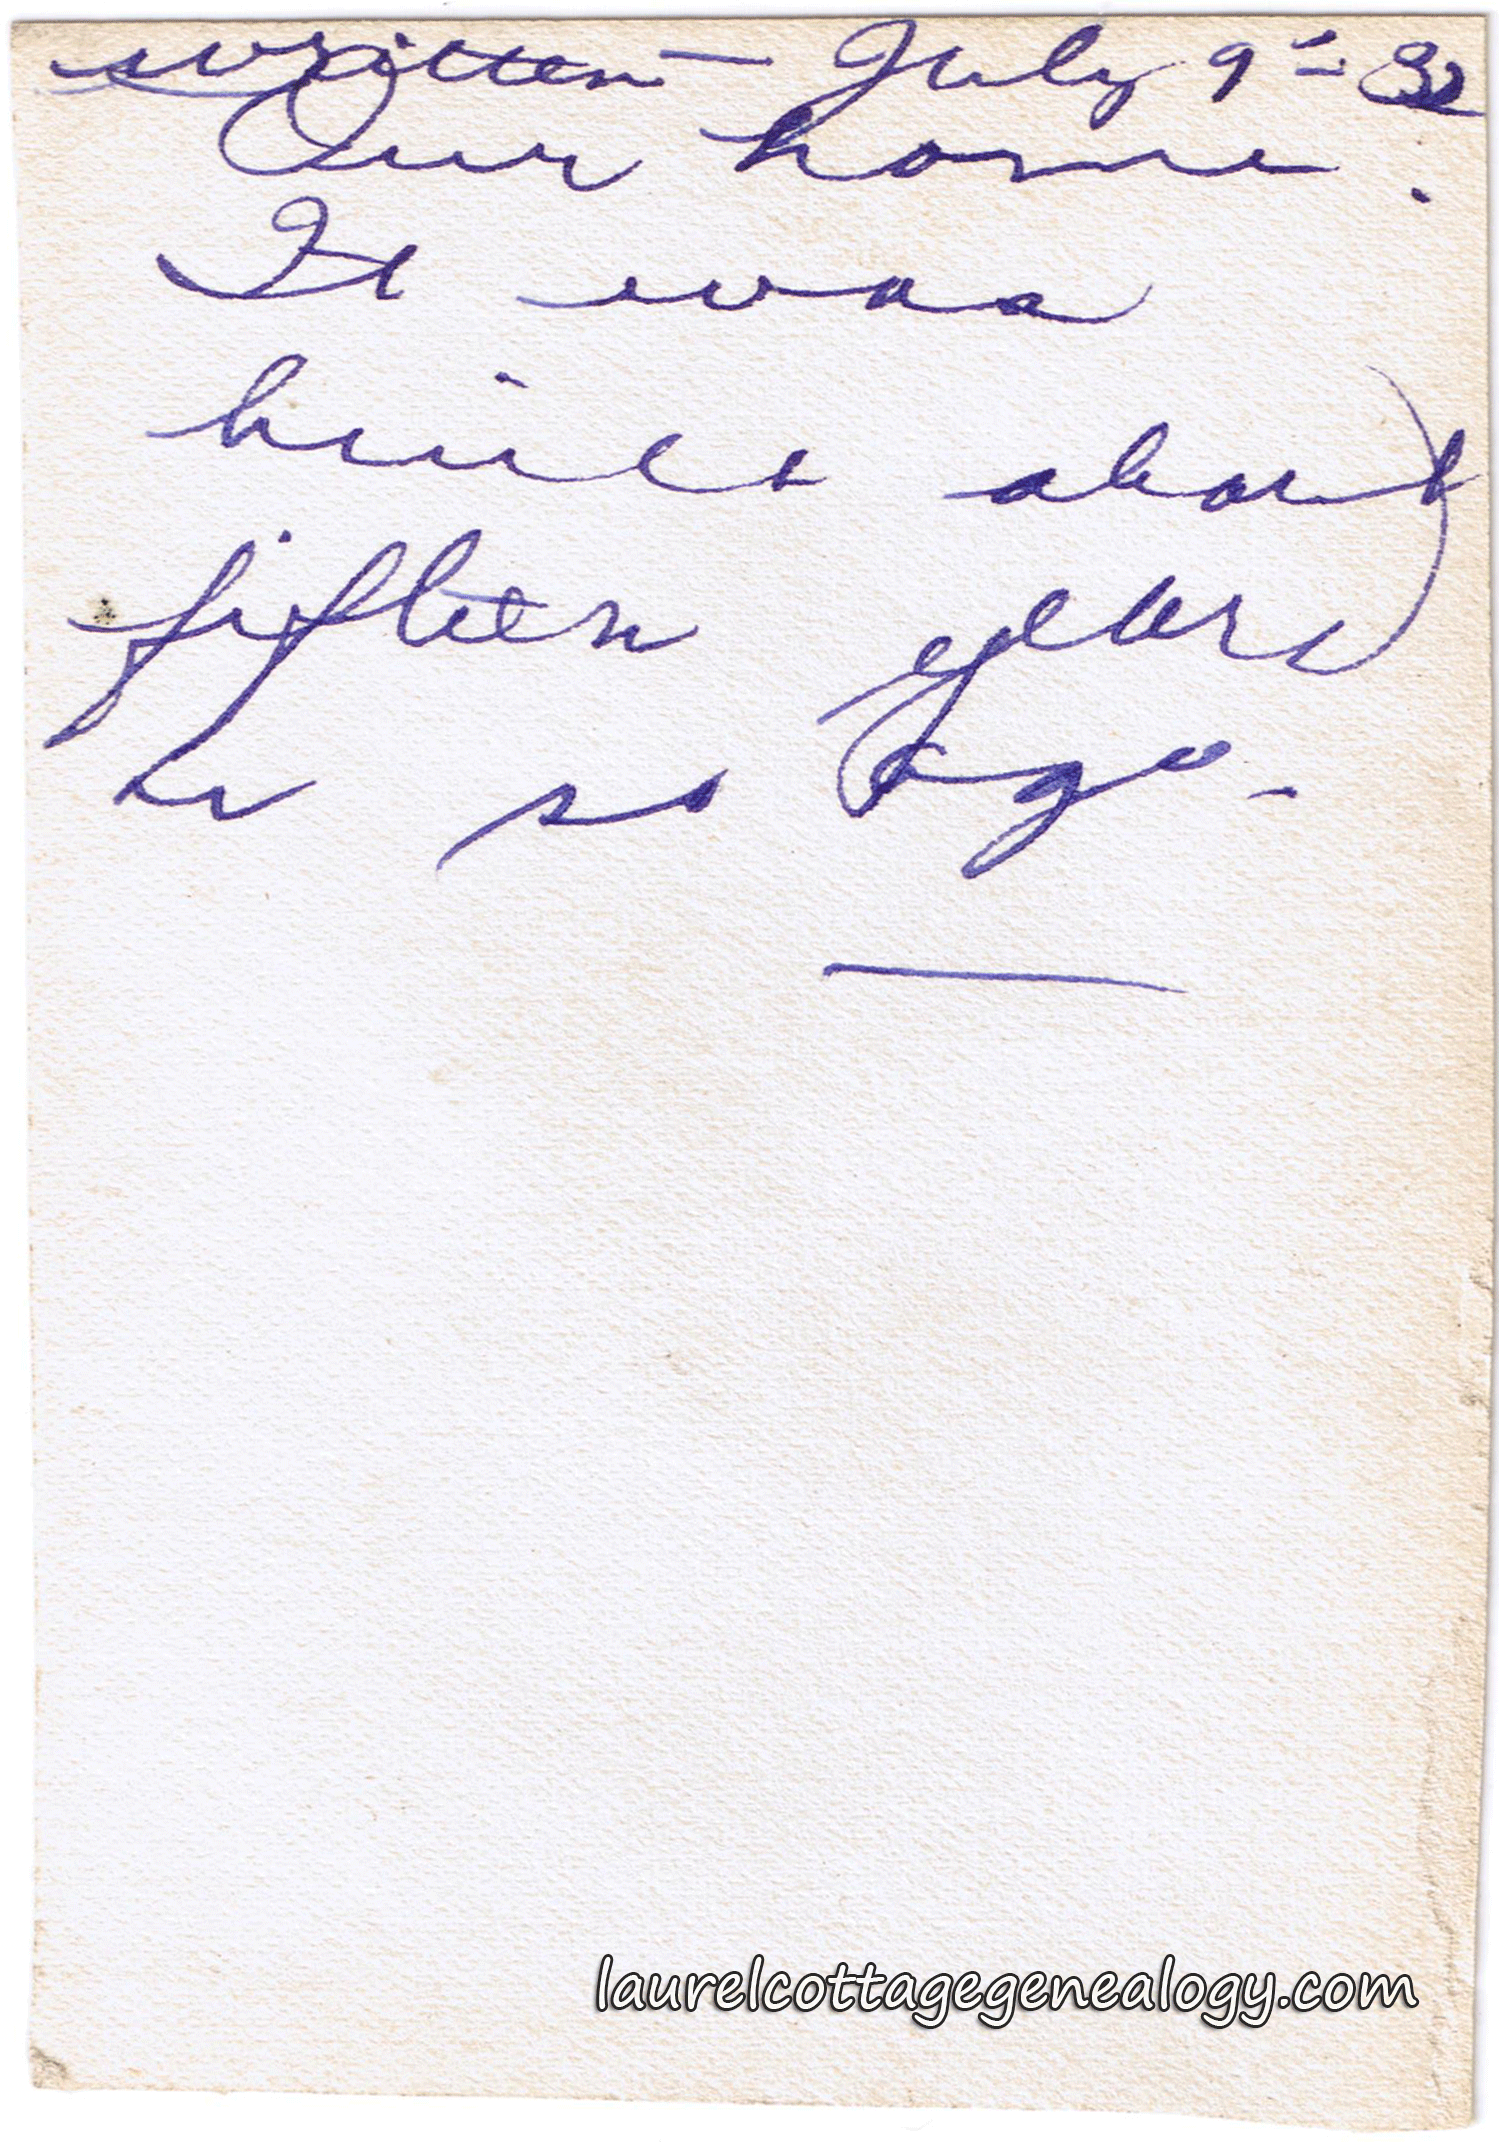 written — July 9 - 32
Our home.
It was
built about
fifteen years
or so ago -
laurelcottagegenealogy.com